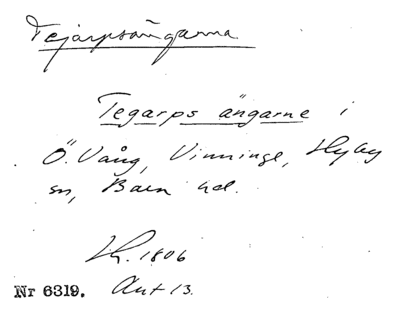 Tejarpsängarna
Tegarps ängarne i
Ö. Vång, Vinninge, Hyby
sn, Bara hd.
Lh. 1806
Nr 6319. Akt 13.